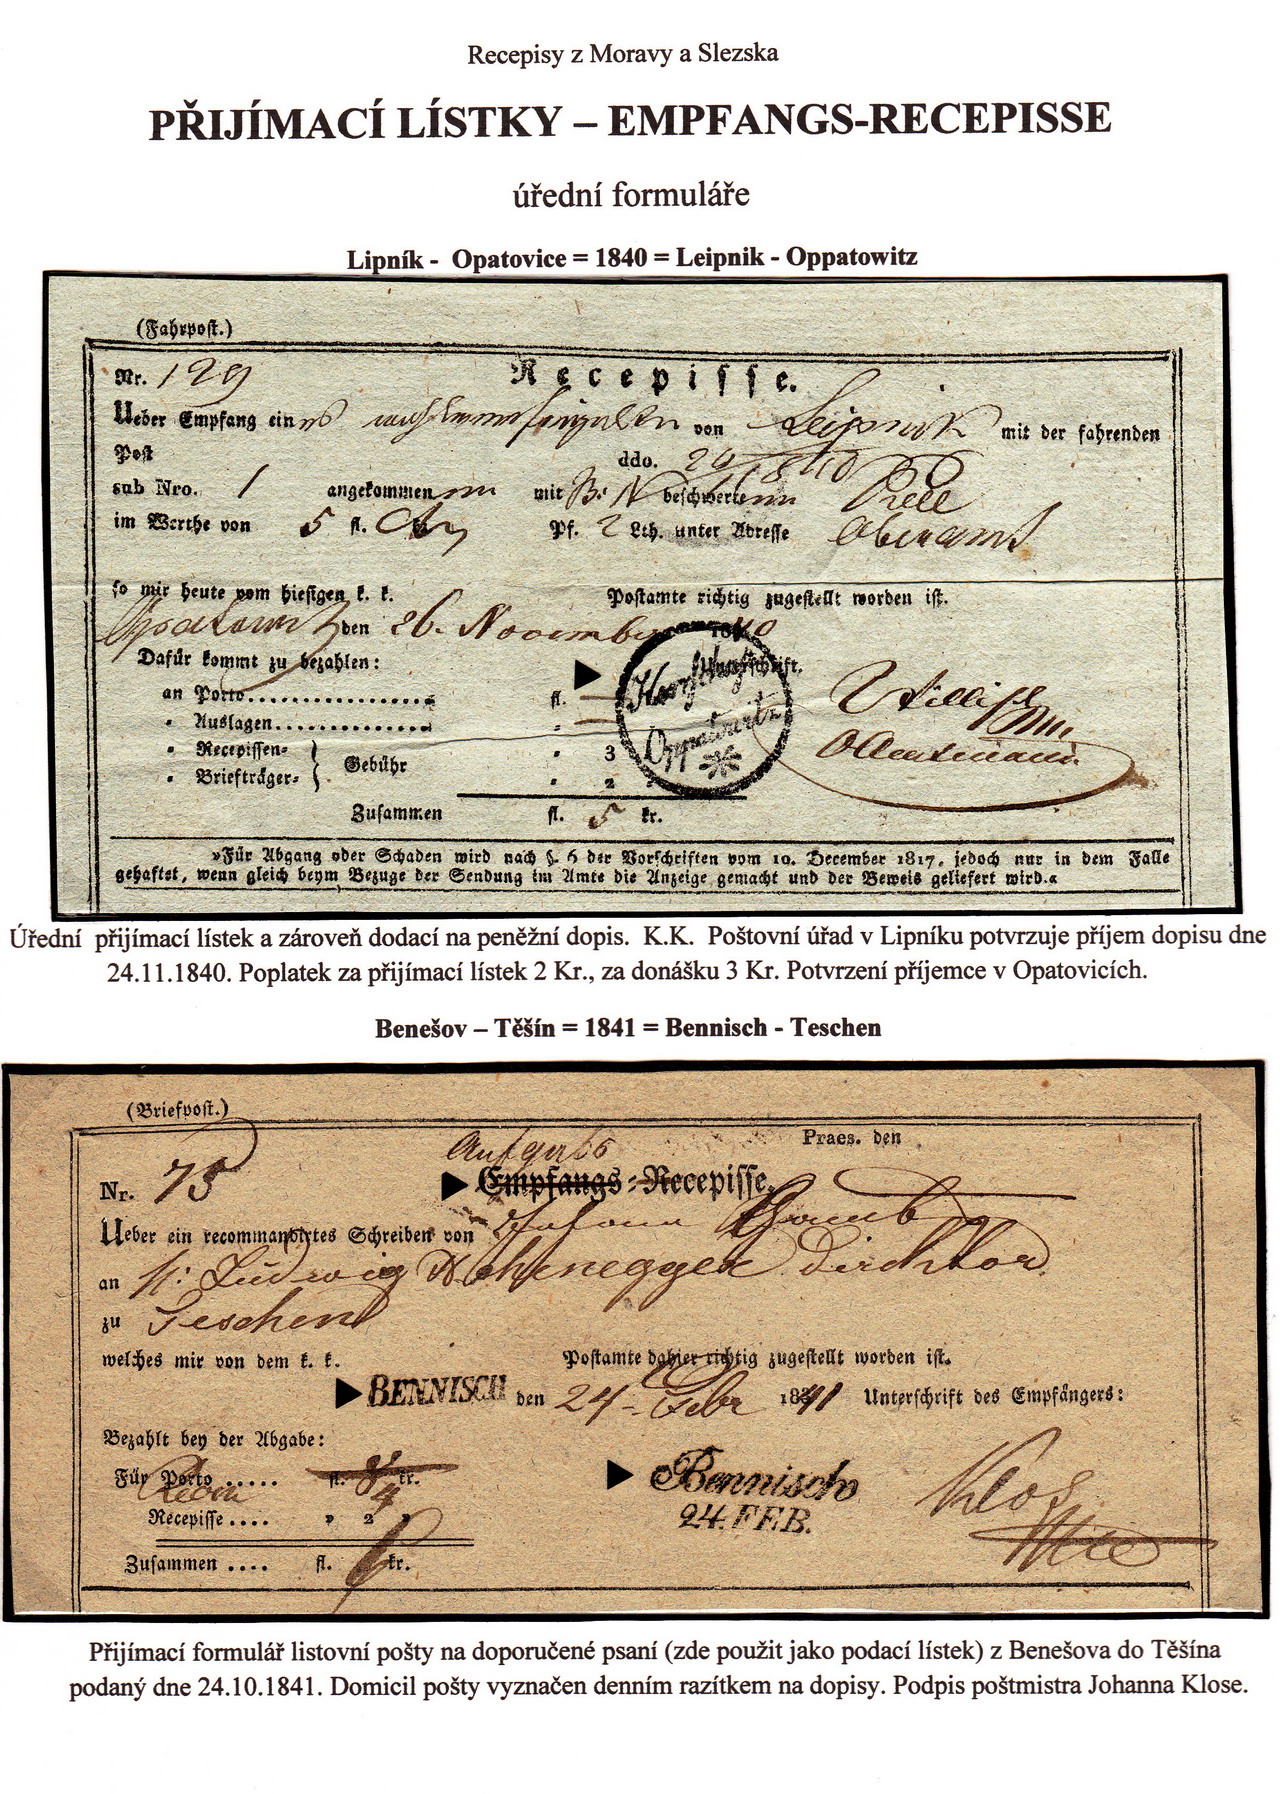 Recepisy z Moravy a Slezska
PŘIJÍMACÍ LÍSTKY – EMPFANGS-RECEPISSE
úřední formuláře
Lipník - Opatovice = 1840 = Leipnik - Oppatowitz
(Fahrpost.)
Nr. 129 Recepisse.
Ueber Empfang eines von Leipnik mit der fahrenden
Post ddo.
sub Nro. 1 angekommen mit beschwert
im Werthe von 5 fl. Pf. 2 Lth. unter Adresse Oberamt
so mir heute vom hiesigen k. k. Postamte richtig zugestellt worden ist.
den 26. November 1840
Dafür kommt zu bezahlen: Unterschrift.
an Porto fl.
" Auslagen
" Recepissen= Gebühr " 3
" Briefträger= " 2
Herrschaft
Oppatowitz
Zusammen fl. 5 kr.
»Für Abgang oder Schaden wird nach §. 6 der Vorschriften vom 19. December 1817, jedoch nur in dem Falle
gehaftet, wenn gleich beym Bezuge der Sendung im Amte die Anzeige gemacht und der Beweis geliefert wird.«
Úřední přijímací lístek a zároveň dodací na peněžní dopis. K.K. Poštovní úřad v Lipníku potvrzuje příjem dopisu dne
24.11.1840. Poplatek za přijímací lístek 2 Kr., za donášku 3 Kr. Potvrzení příjemce v Opatovicích.
Benešov – Těšín = 1841 = Bennisch - Teschen
(Briefpost.)
Praes. den
Aufgabs
Nr. 75 Empfangs=Recepisse.
Ueber ein recommandirtes Schreiben von Johann
an H: Ludwig Hohenegger Direktor
zu Teschen
welches mir von dem k. k. Postamte dahier richtig zugestellt worden ist.
BENNISCH den 24 Febr 1841 Unterschrift des Empfängers:
Bezahlt bey der Abgabe:
Für Porto ..... fl. kr. 4
Recepisse .... " 2 "
Bennisch
24. FEB.
Klos
Zusammen .... fl. 6 kr.
Přijímací formulář listovní pošty na doporučené psaní (zde použit jako podací lístek) z Benešova do Těšína
podaný dne 24.10.1841. Domicil pošty vyznačen denním razítkem na dopisy. Podpis poštmistra Johanna Klose.